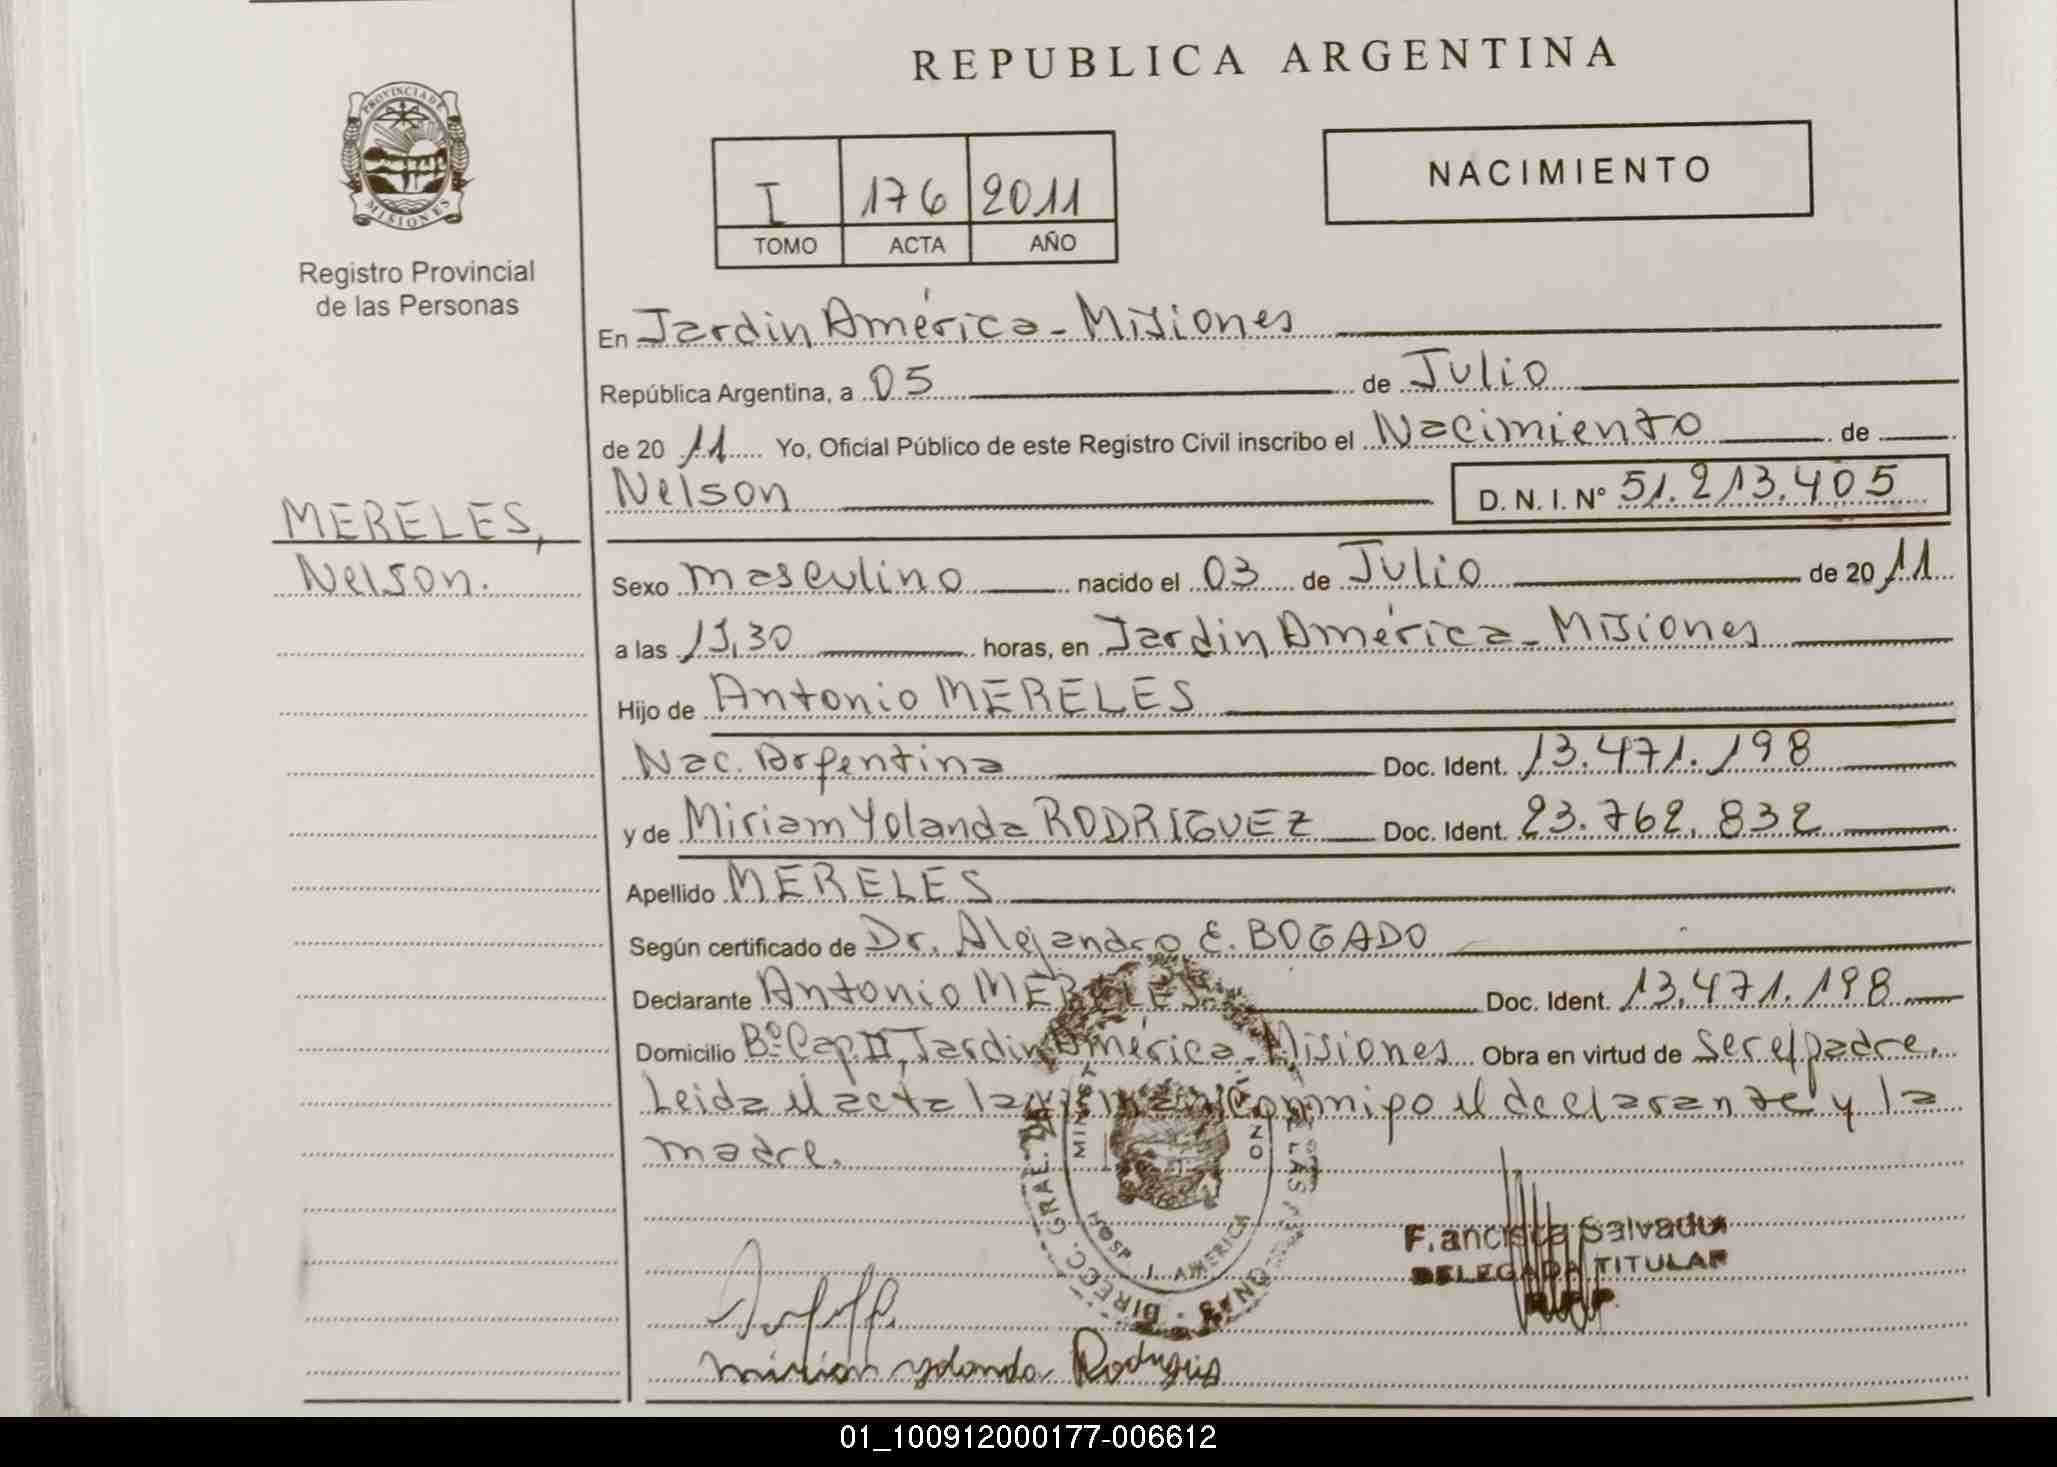 REPUBLICA ARGENTINA
PROVINCIA DE
MISIONES
Registro Provincial
de las Personas
I 176 2011
TOMO ACTA AÑO
NACIMIENTO
En Jardin América - Misiones
República Argentina, a 05 de Julio
de 20 11 Yo, Oficial Público de este Registro Civil inscribo el Nacimiento de
Nelson D. N. I. N° 51.213.405
MERELES,
Nelson.
Sexo masculino nacido el 03 de Julio de 20 11
a las 13,30 horas, en Jardin América - Misiones
Hijo de Antonio MERELES
Nac. Argentina Doc. Ident. 13.471.198
y de Miriam Yolanda RODRIGUEZ Doc. Ident. 23.762.832
Apellido MERELES
Según certificado de Dr. Alejandro E. BOGADO
Declarante Antonio MERELES Doc. Ident. 13.471.198
Domicilio Bº Cap. II, Jardin América - Misiones Obra en virtud de ser el padre.
Leida el acta la conmigo el declarante y la
madre.
DIRECC. GRAL. DE LAS
HOSP. J. AMERICA
Francisca Salvador
DELEGADA TITULAR
R.P.P.
Mirian yolanda Rodrigues
01_100912000177-006612